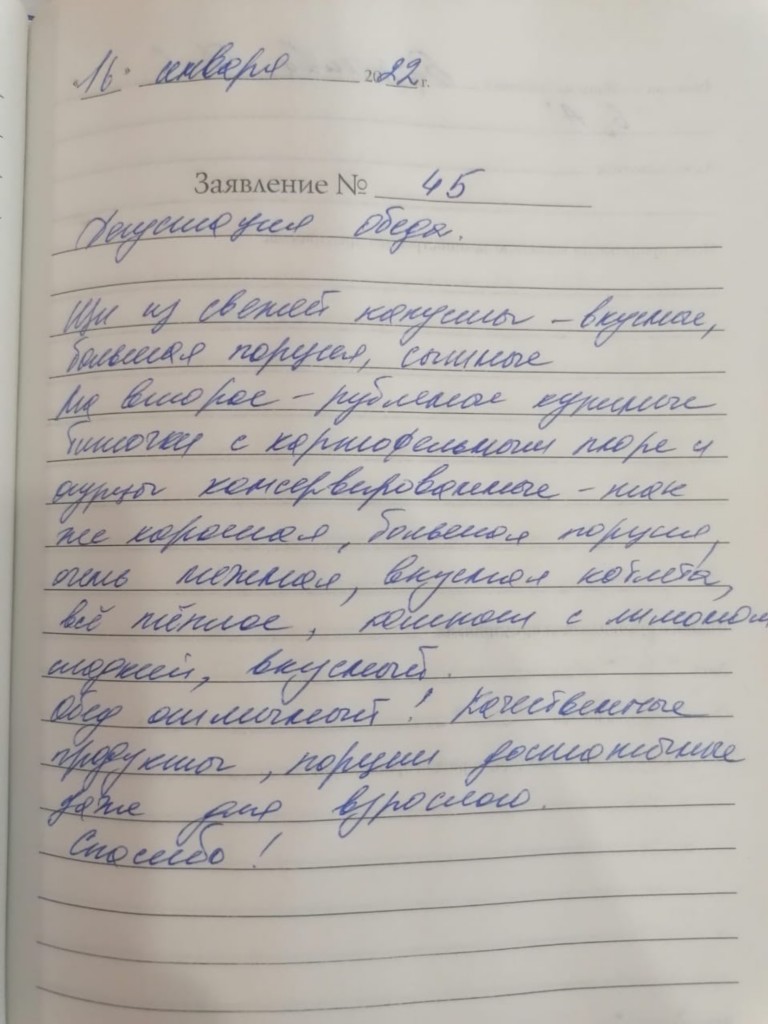 "16" января 2022 г.
Заявление № 45
Дегустация обеда.
Щи из свежей капусты - вкусные,
большая порция, сытные
На второе - рубленые куриные
биточки с картофельным пюре и
огурцы консервированные - так
же хорошая, большая порция,
очень нежная, вкусная котлета,
всё тёплое, компот с лимоном
сладкий, вкусный.
Обед отличный! Качественные
продукты, порции достаточные
даже для взрослого.
Спасибо!